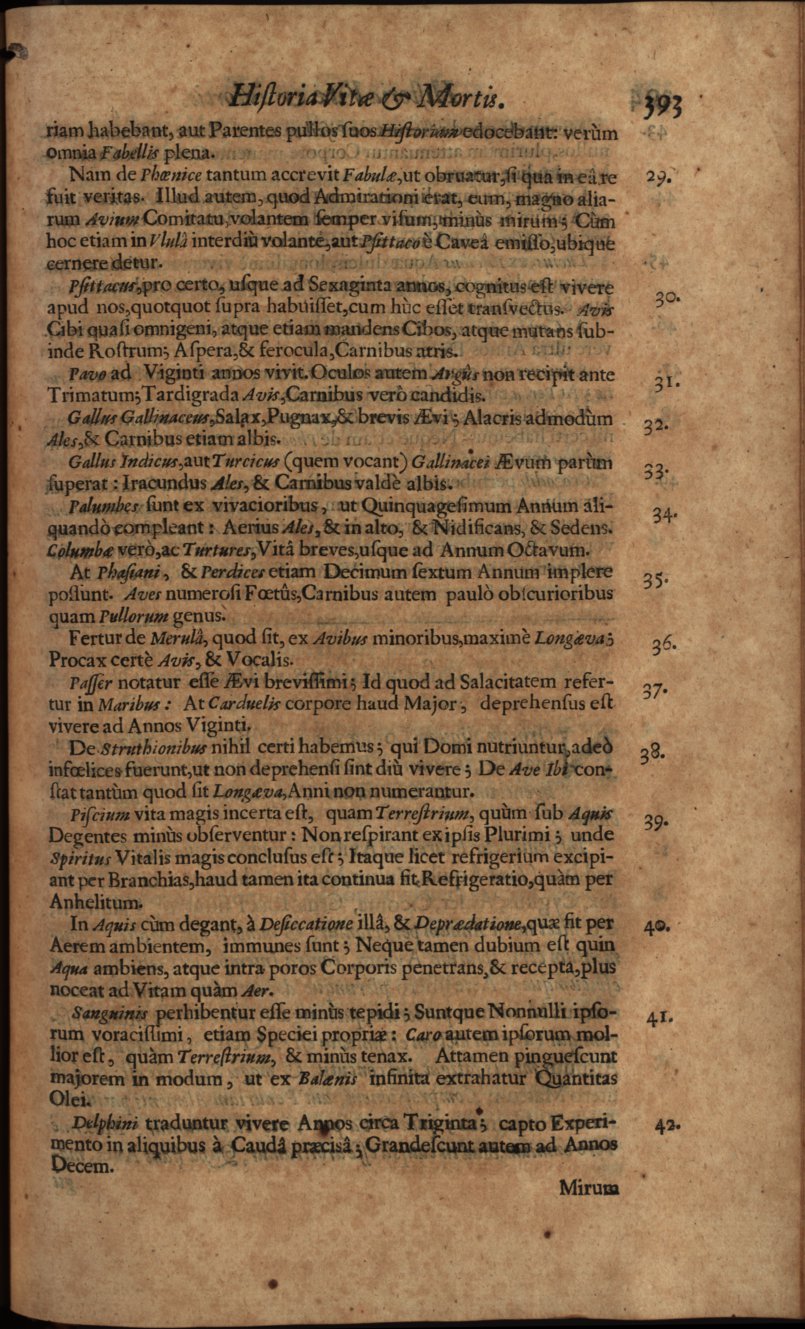 Historia Vitæ & Mortis. 393
riam habebant, aut Parentes pullos suos Historiam edocebant: verùm
omnia Fabellis plena.
Nam de Phœnice tantum accrevit Fabulæ, ut obruatur, si qua in eâ re 29.
fuit veritas. Illud autem, quod Admirationi erat, eum, magno alia-
rum Avium Comitatu, volantem semper visum, minùs mirum; Cùm
hoc etiam in Vlulâ interdiù volante, aut Psittaco è Caveâ emisso, ubique
cernere detur.
Psittacus, pro certo, usque ad Sexaginta annos, cognitus est vivere 30.
apud nos, quotquot supra habuisset, cum hùc esset transvectus. Avis
Cibi quasi omnigeni, atque etiam mandens Cibos, atque mutans sub-
inde Rostrum; Aspera, & ferocula, Carnibus atris.
Pavo ad Viginti annos vivit. Oculos autem Argûs non recipit ante 31.
Trimatum; Tardigrada Avis, Carnibus verò candidis.
Gallus Gallinaceus, Salax, Pugnax, & brevis Ævi; Alacris admodùm 32.
Ales, & Carnibus etiam albis.
Gallus Indicus, aut Turcicus (quem vocant) Gallinacei Ævum parùm 33.
superat: Iracundus Ales, & Carnibus valdè albis.
Palumbes sunt ex vivacioribus, ut Quinquagesimum Annum ali- 34.
quandò compleant: Aerius Ales, & in alto, & Nidificans, & Sedens.
Columbæ verò, ac Turtures, Vitâ breves, usque ad Annum Octavum.
At Phasiani, & Perdices etiam Decimum sextum Annum implere 35.
possunt. Aves numerosi Fœtûs, Carnibus autem paulò obscurioribus
quam Pullorum genus.
Fertur de Merulâ, quod sit, ex Avibus minoribus, maximè Longæva; 36.
Procax certè Avis, & Vocalis.
Passer notatur esse Ævi brevissimi; Id quod ad Salacitatem refer- 37.
tur in Maribus: At Carduelis corpore haud Major, deprehensus est
vivere ad Annos Viginti.
De Struthionibus nihil certi habemus; qui Domi nutriuntur, adeò 38.
infœlices fuerunt, ut non deprehensi sint diù vivere; De Ave Ibi con-
stat tantùm quod sit Longæva, Anni non numerantur.
Piscium vita magis incerta est, quam Terrestrium, quùm sub Aquis 39.
Degentes minùs observentur: Non respirant ex ipsis Plurimi; unde
Spiritus Vitalis magis conclusus est; Itaque licet refrigerium excipi-
ant per Branchias, haud tamen ita continua fit Refrigeratio, quàm per
Anhelitum.
In Aquis cùm degant, à Desiccatione illâ, & Deprædatione, quæ fit per 40.
Aerem ambientem, immunes sunt; Neque tamen dubium est quin
Aqua ambiens, atque intra poros Corporis penetrans, & recepta, plus
noceat ad Vitam quàm Aer.
Sanguinis perhibentur esse minùs tepidi; Suntque Nonnulli ipso- 41.
rum voracissimi, etiam Speciei propriæ: Caro autem ipsorum mol-
lior est, quàm Terrestrium, & minùs tenax. Attamen pinguescunt
majorem in modum, ut ex Balænis infinita extrahatur Quantitas
Olei.
Delphini traduntur vivere Annos circa Triginta; capto Experi- 42.
mento in aliquibus à Caudâ præcisâ; Grandescunt autem ad Annos
Decem.
Mirum